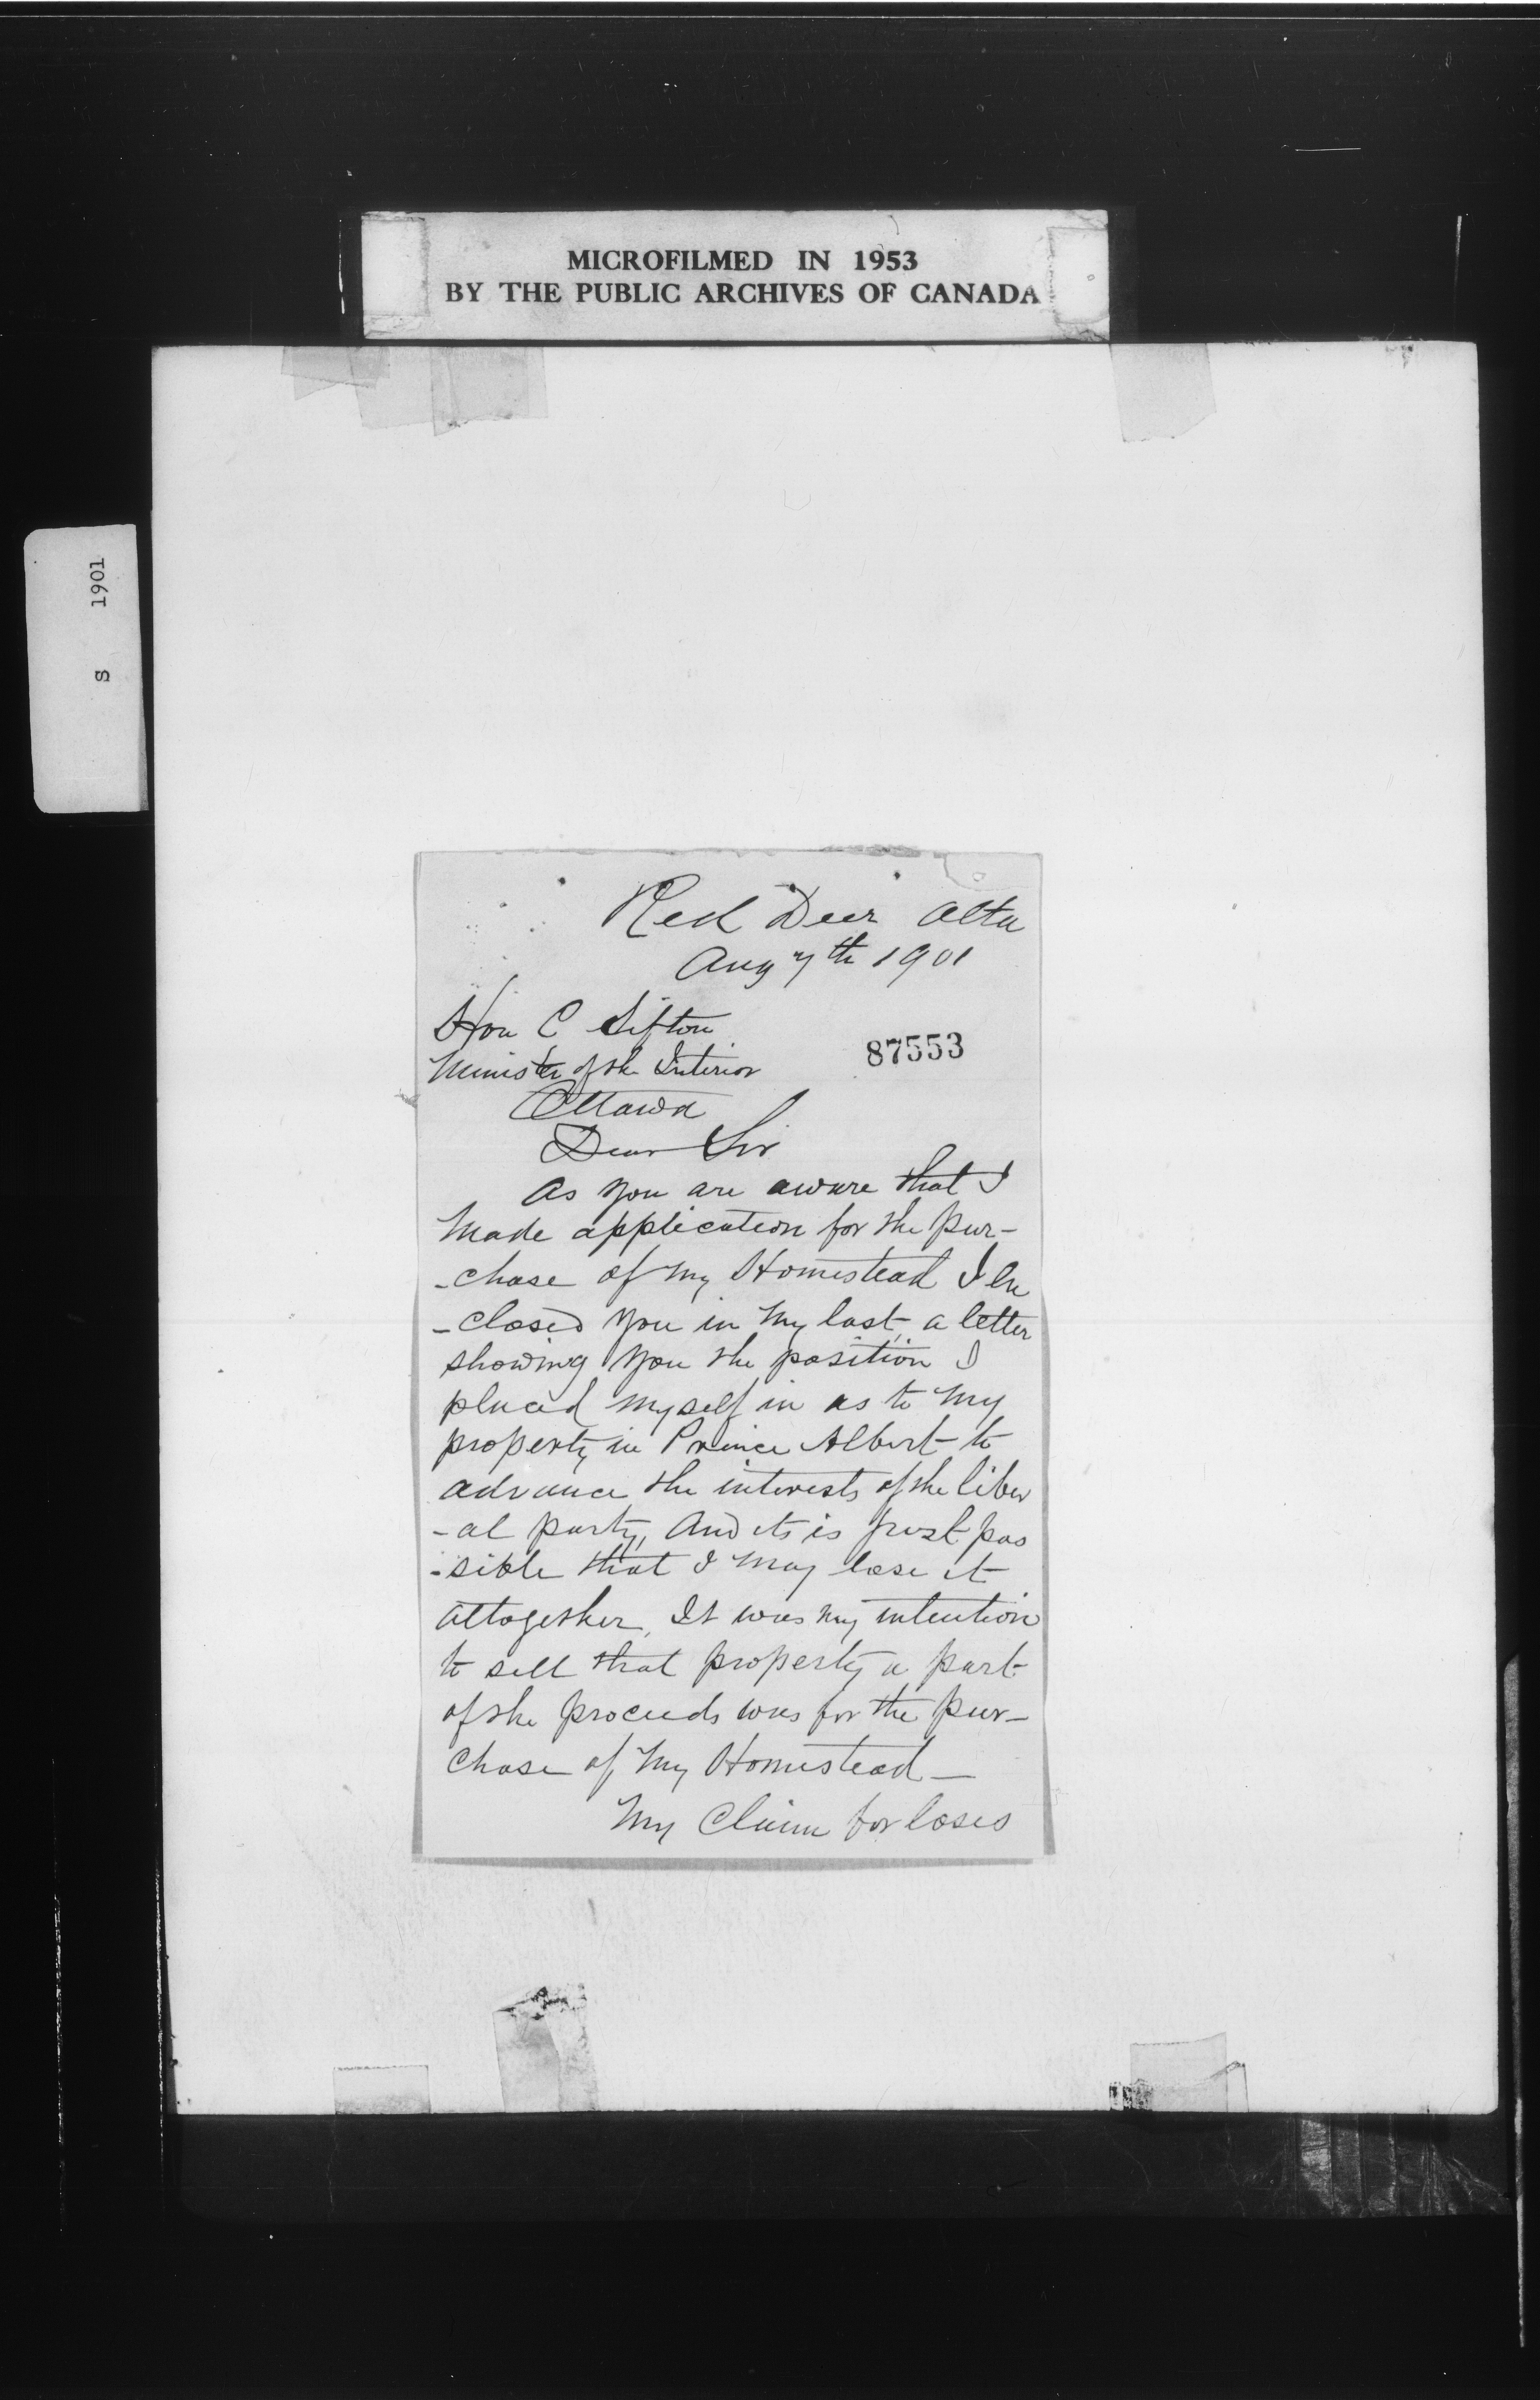 MICROFILMED IN 1953
BY THE PUBLIC ARCHIVES OF CANADA
S 1901
Red Deer Alta
Aug 7th 1901
Hon C Sifton
Minister of the Interior
87553
Ottawa
Dear Sir
As you are aware that I
made application for the pur-
-chase of my Homestead I en
-closed you in my last, a letter
showing you the position I
placed myself in as to my
property in Prince Albert to
advance the interests of the liber
-al party, And its is just pos
-sible that I may lose it
altogether, It was my intention
to sell that property a part
of the proceeds was for the pur-
chase of my Homestead —
My Claim for loses